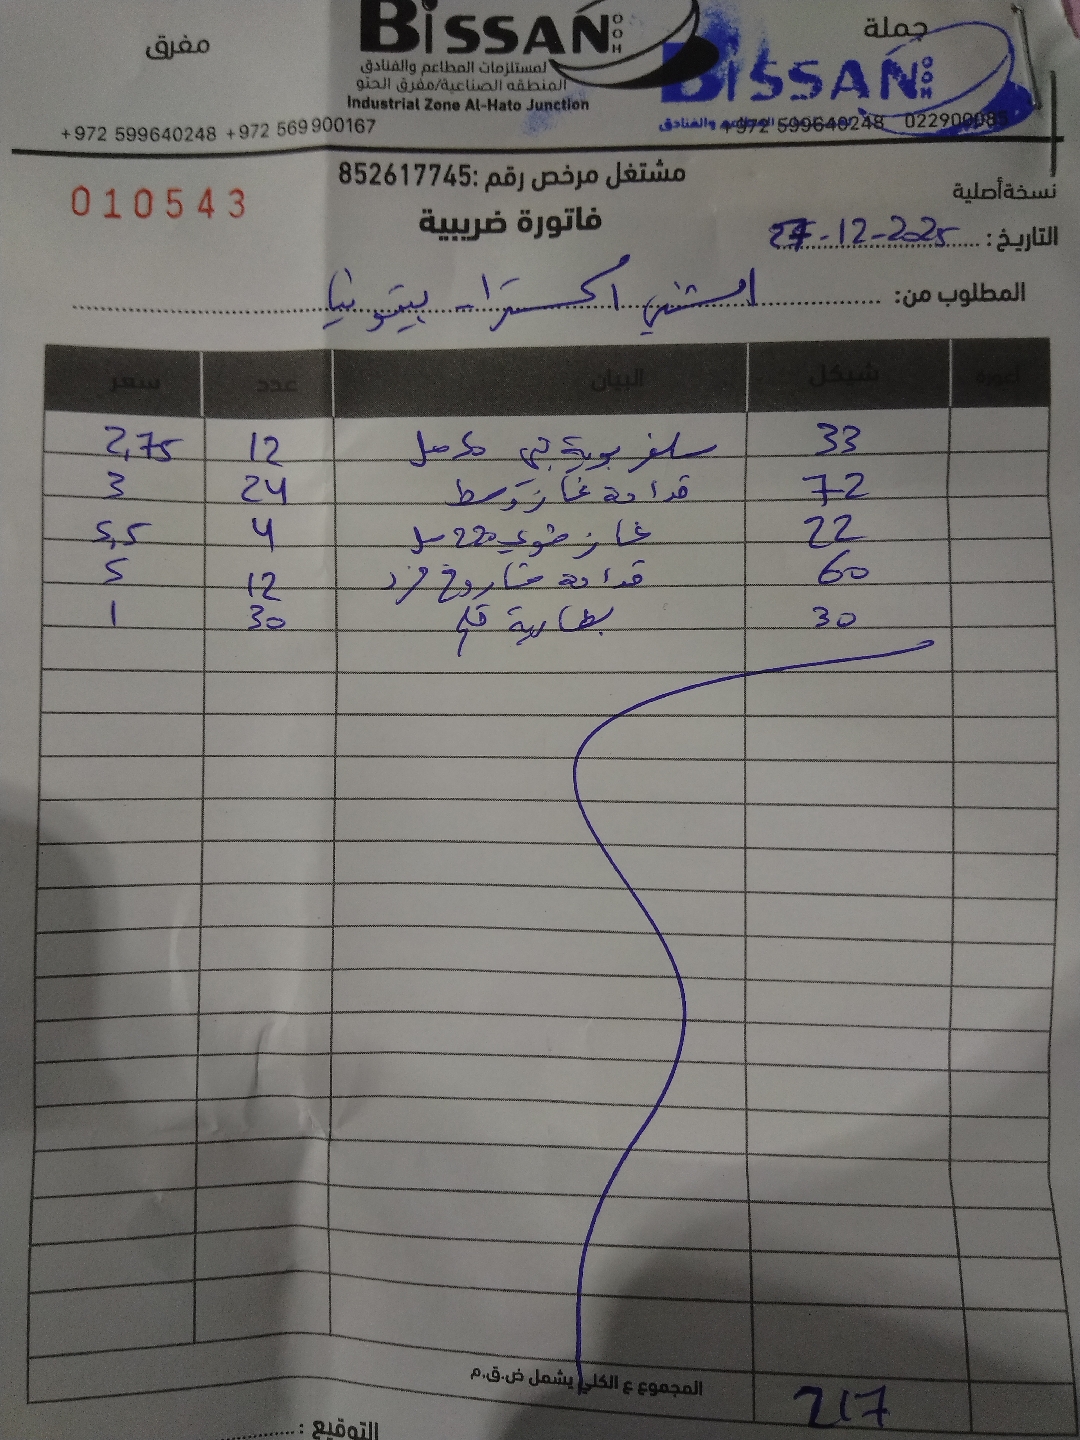 جملة
BiSSAN OOH
مفرق
لمستلزمات المطاعم والفنادق
المنطقه الصناعية/مفرق الحتو
Industrial Zone Al-Hato Junction
BiSSAN OOH
المطاعم والفنادق
+972 599640248 +972 569900167
+972 599640248 022900085
مشتغل مرخص رقم :852617745
نسخةأصلية
010543
فاتورة ضريبية
التاريخ: 27-12-2025
المطلوب من: اكسترا - بيتونيا
شيكل البيان عدد سعر
33 بوية 12 2,75
72 قداحة غاز وسط 24 3
22 غاز 220 مل 4 5,5
60 قداحة صاروخ فرد 12 5
30 بطارية قلم 30 1
المجموع ع الكلي يشمل ض.ق.م 217
التوقيع :